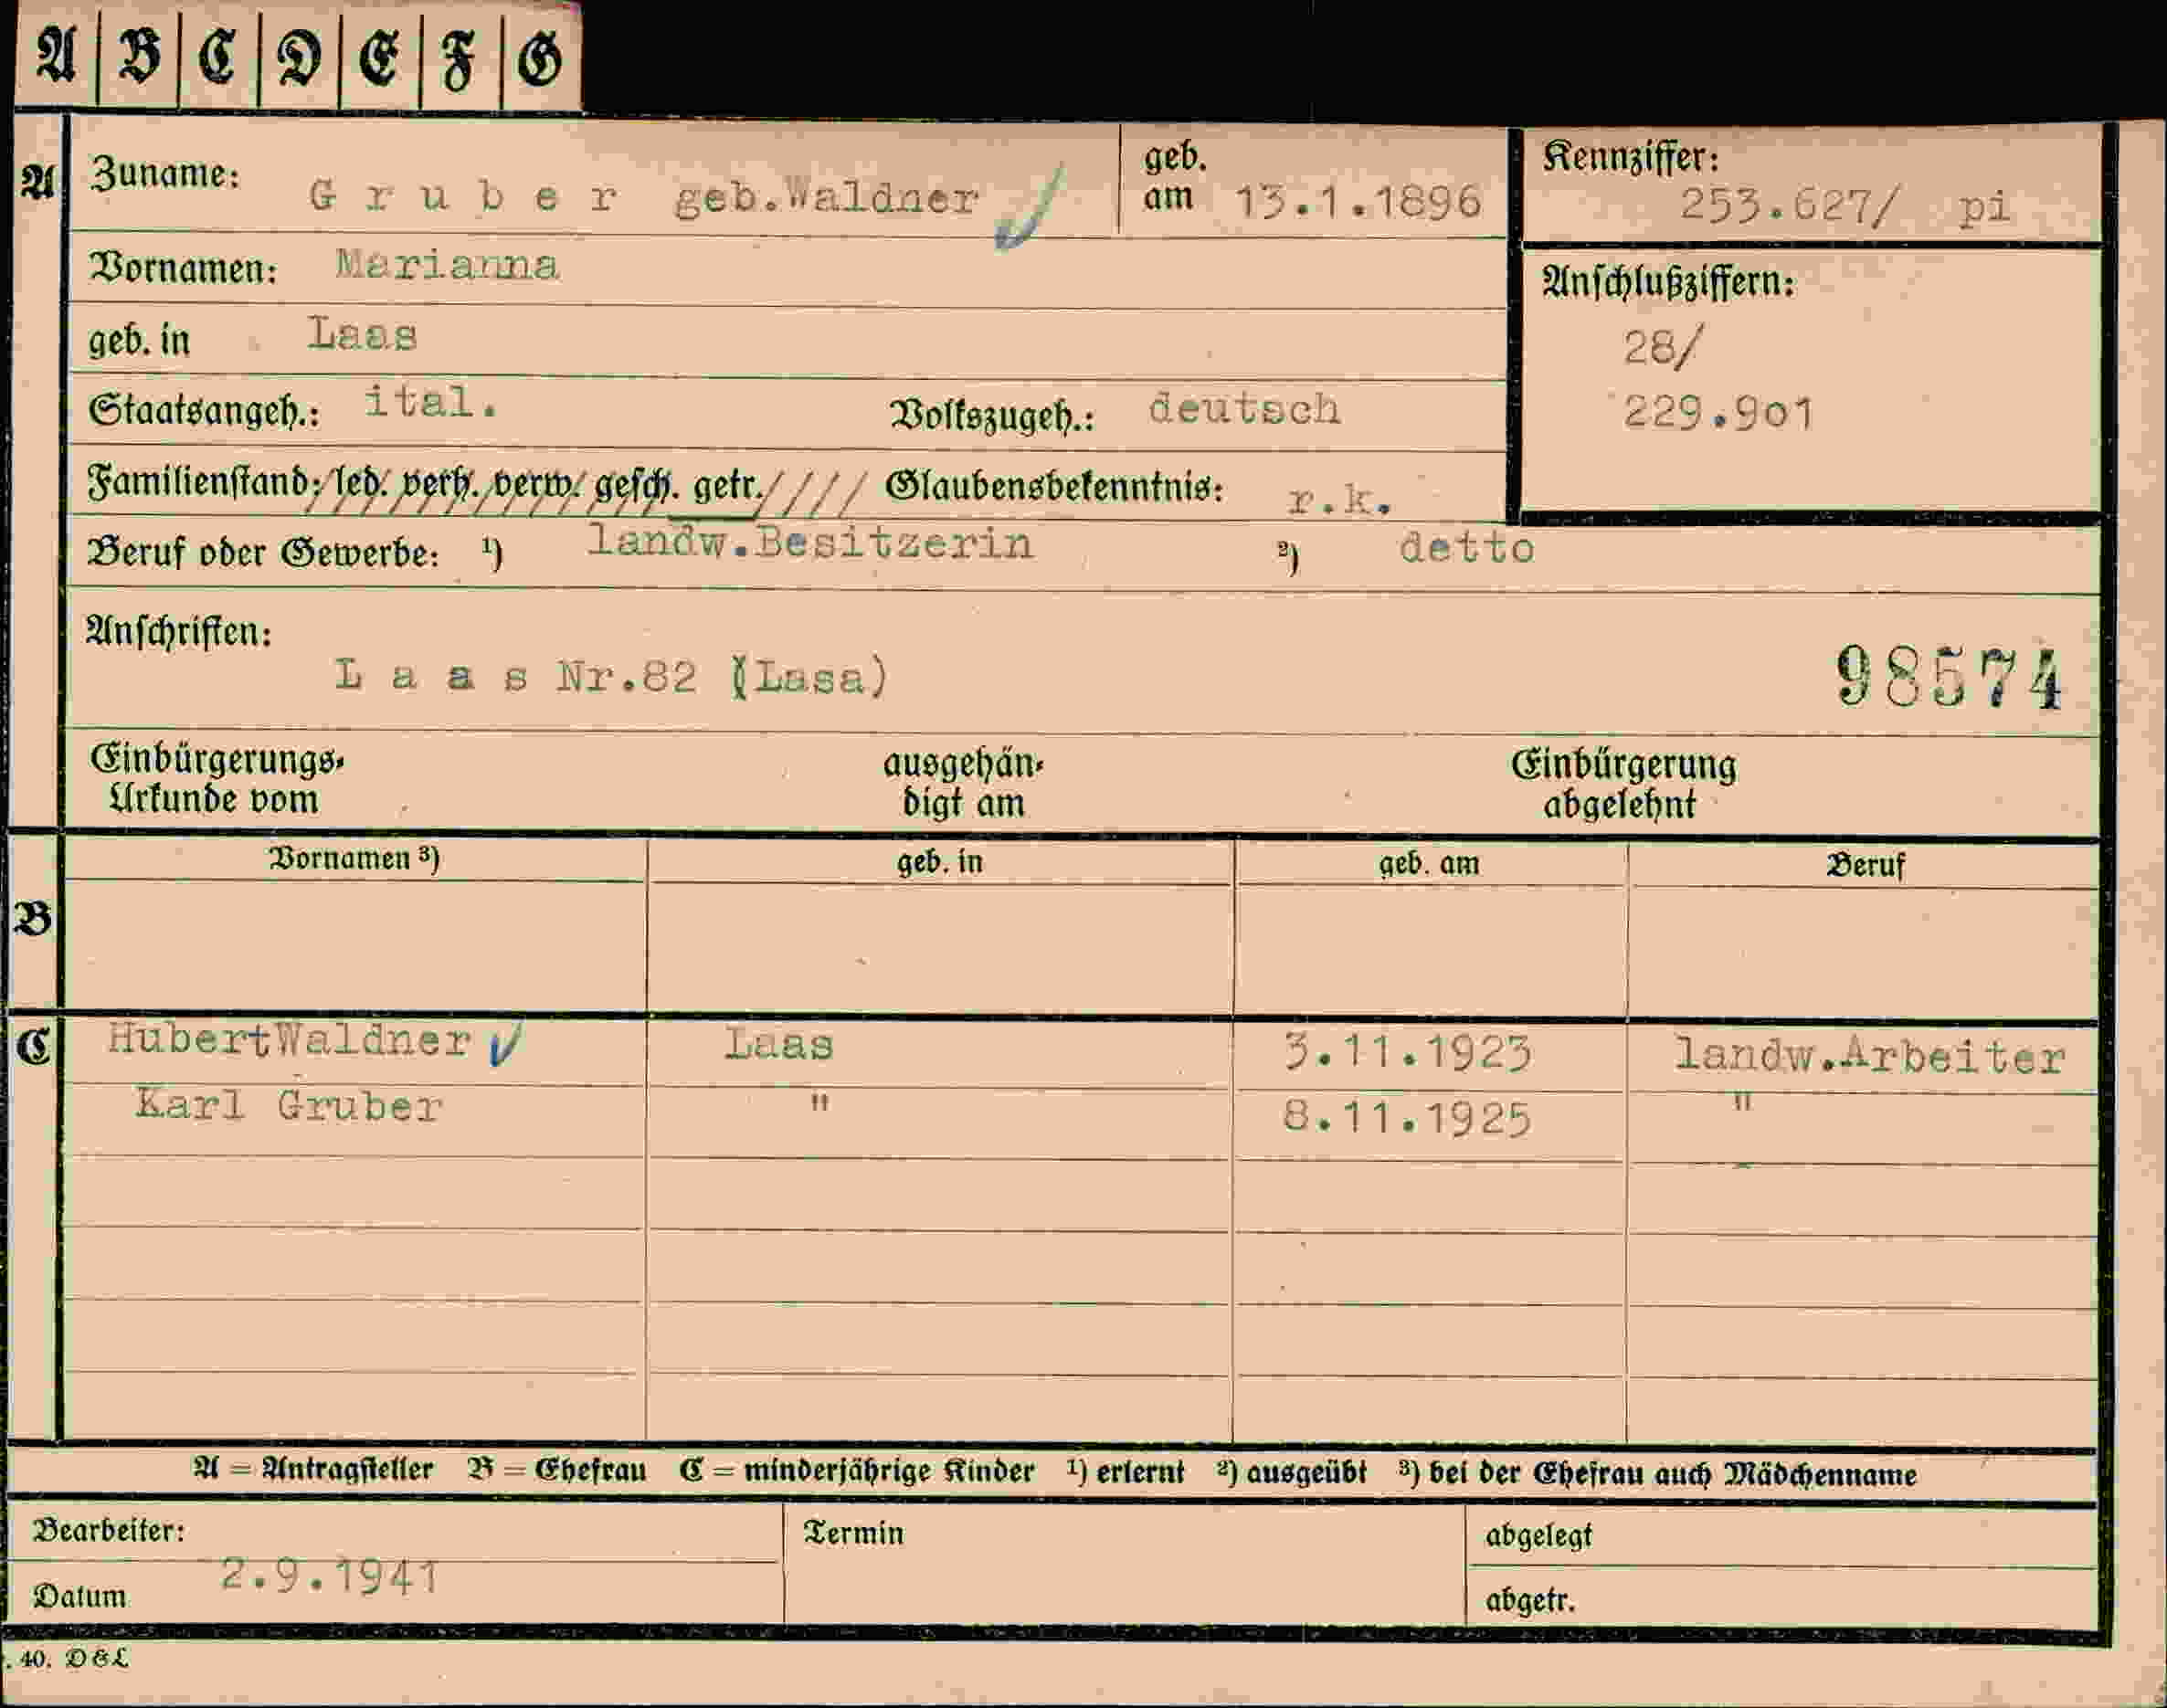 A B C D E F G
A Zuname: G r u b e r geb.Waldner geb. am 13.1.1896 Kennziffer: 253.627/ pi
Vornamen: Marianna
Anschlußziffern:
geb. in Laas
28/
Staatsangeh.: ital. Volkszugeh.: deutsch
229.9o1
Familienstand: led. verh. verw. gesch. getr. //// Glaubensbekenntnis: r.k.
Beruf oder Gewerbe: ¹) landw.Besitzerin ²) detto
Anschriften:
L a a s Nr.82 (Lasa)
98574
Einbürgerungs- ausgehän- Einbürgerung
Urkunde vom digt am abgelehnt
Vornamen ³) geb. in geb. am Beruf
B
C HubertWaldner Laas 3.11.1923 landw.Arbeiter
Karl Gruber " 8.11.1925 "
A = Antragsteller B = Ehefrau C = minderjährige Kinder ¹) erlernt ²) ausgeübt ³) bei der Ehefrau auch Mädchenname
Bearbeiter: Termin abgelegt
Datum 2.9.1941 abgetr.
. 40. D & L